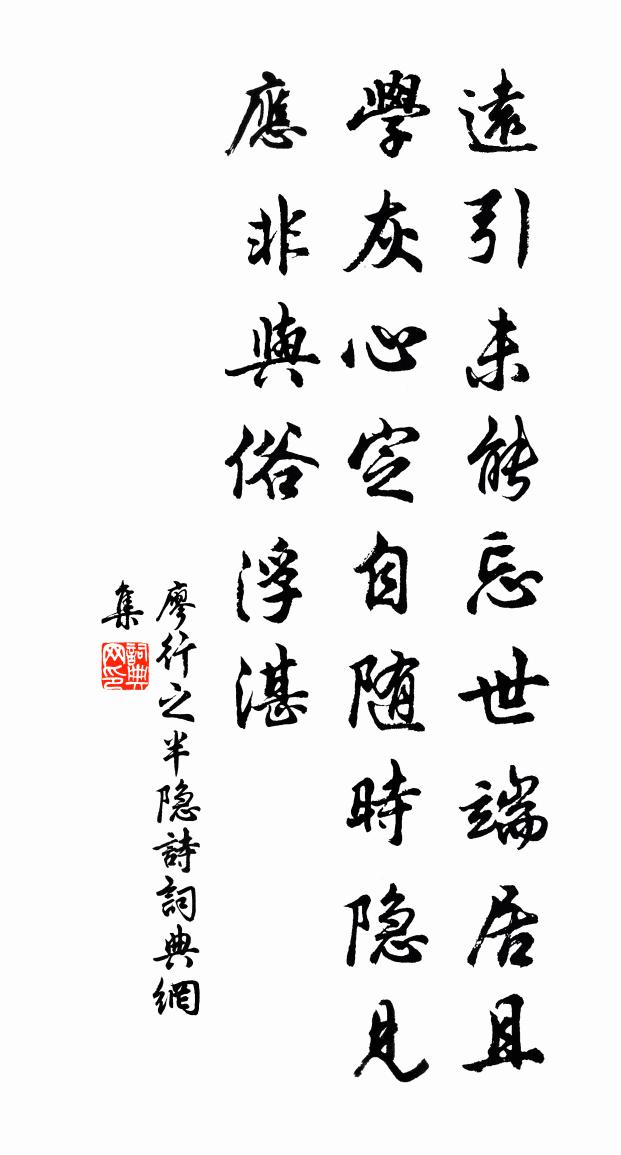 遠引未能忘世端居且
學灰心定自随時隐見
應非與俗浮湛
廖行之半隐詩詞典網
集
詞典网印